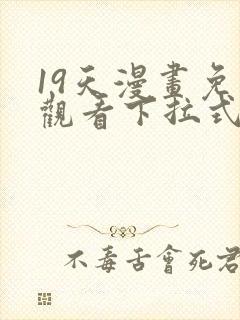 19天漫畫免
觀看下拉式
不毒舌會死君